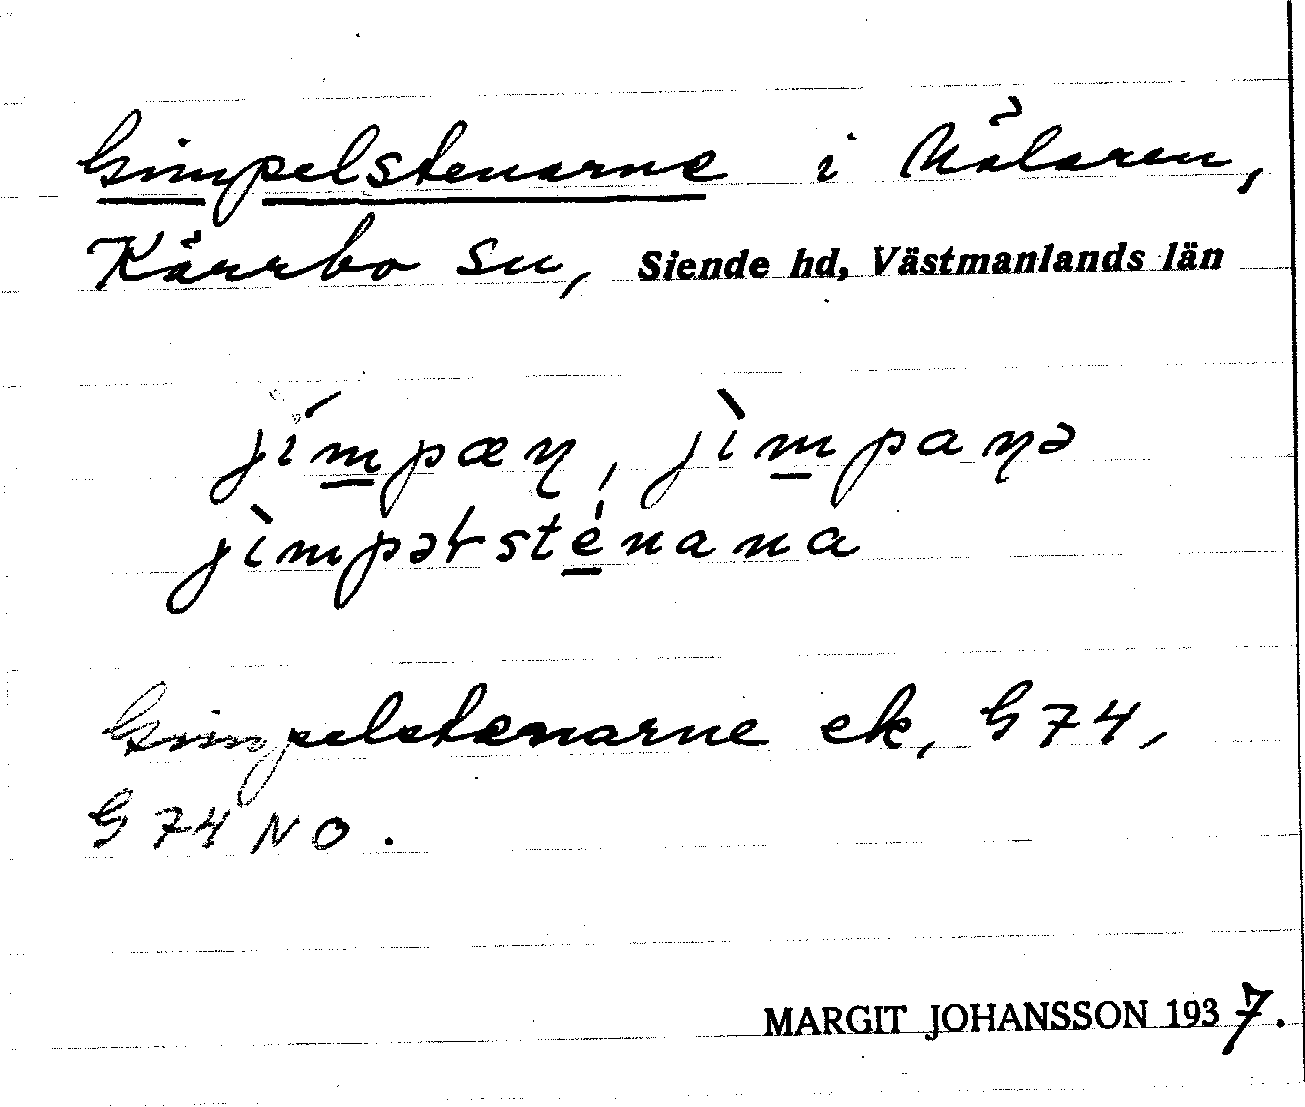 Gimpelstenarne i Mälaren,
Kärrbo sn, Siende hd, Västmanlands län
jímpæꞃ, jìmpaꞃə
jìmpəƚsténana
Gimpelstenarne ek, G 74,
G 74 NO.
MARGIT JOHANSSON 1937.